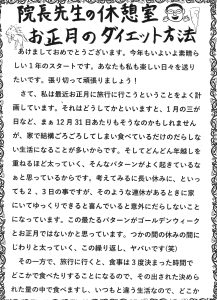 院長先生の休憩室
お正月のダイエット方法
あけましておめでとうございます。今年もいよいよ素晴ら
しい1年のスタートです。あなたも私も楽しい日々を送り
たいです。張り切って頑張りましょう！
さて、私は最近お正月に旅行に行こうということをよく計
画しています。それはどうしてかといいますと、1月の三が
日など、まぁ12月31日あたりもそうなのかもしれません
が、家で結構ごろごろしてしまい食べているだけのだらしな
い生活になることが多いからです。そしてどんどん年越しを
重ねるほど太っていく、そんなパターンがよく起きているな
ぁと思っているからです。考えてみるに長い休みに、といっ
ても2、3日の事ですが、そのような連休があるときに家
にいてゆっくりできると喜んでいると意外にだらしないこと
になっています。この最たるパターンがゴールデンウィーク
とお正月ではないかと思っています。つかの間の休みの間に
じわりと太っていく、この繰り返し、ヤバいです(笑)
その一方で、旅行に行くと、食事は3度決まった時間で
どこかで食べたりすることになるので、その出された決めら
れた量の中で食べますし、いつもと違う生活なので、どこか